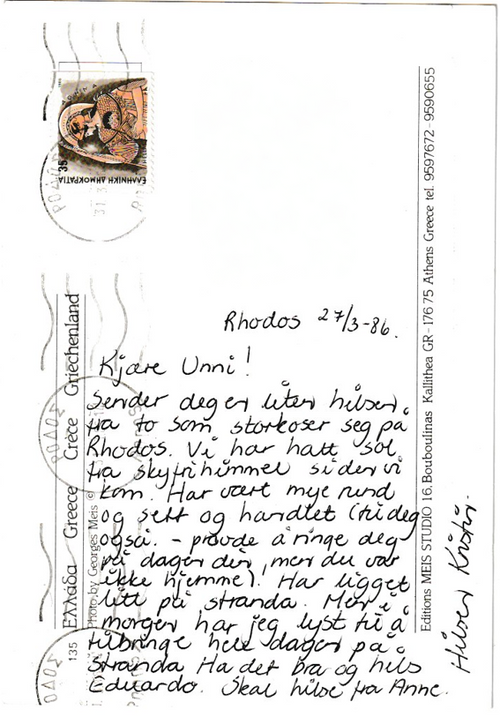 35
ΕΛΛΗΝΙΚΗ ΔΗΜΟΚΡΑΤΙΑ
ΡΟΔΟΣ
31.3
ΡΟΔΟΣ
135 Ελλάδα Greece Grèce Griechenland
Photo by Georges Meis ©
Rhodos 27/3-86.
Kjære Unni!
Sender deg en liten hilsen
fra to som storkoser seg på
Rhodos. Vi har hatt sol
fra skyfri himmel siden vi
kom. Har vært mye rund
og sett og handlet (til deg
også. - prøvde å ringe deg
på dagen din, men du var
ikke hjemme). Har ligget
litt på stranda. Men i
morgen har jeg lyst til å
tilbringe hele dagen på
stranda Ha det bra og hils
Eduardo. Skal hilse fra Anne.
Hilsen Kristin.
Editions MEIS STUDIO 16. Bouboulinas Kallithea GR-176 75 Athens Greece tel. 9597672 - 9590655